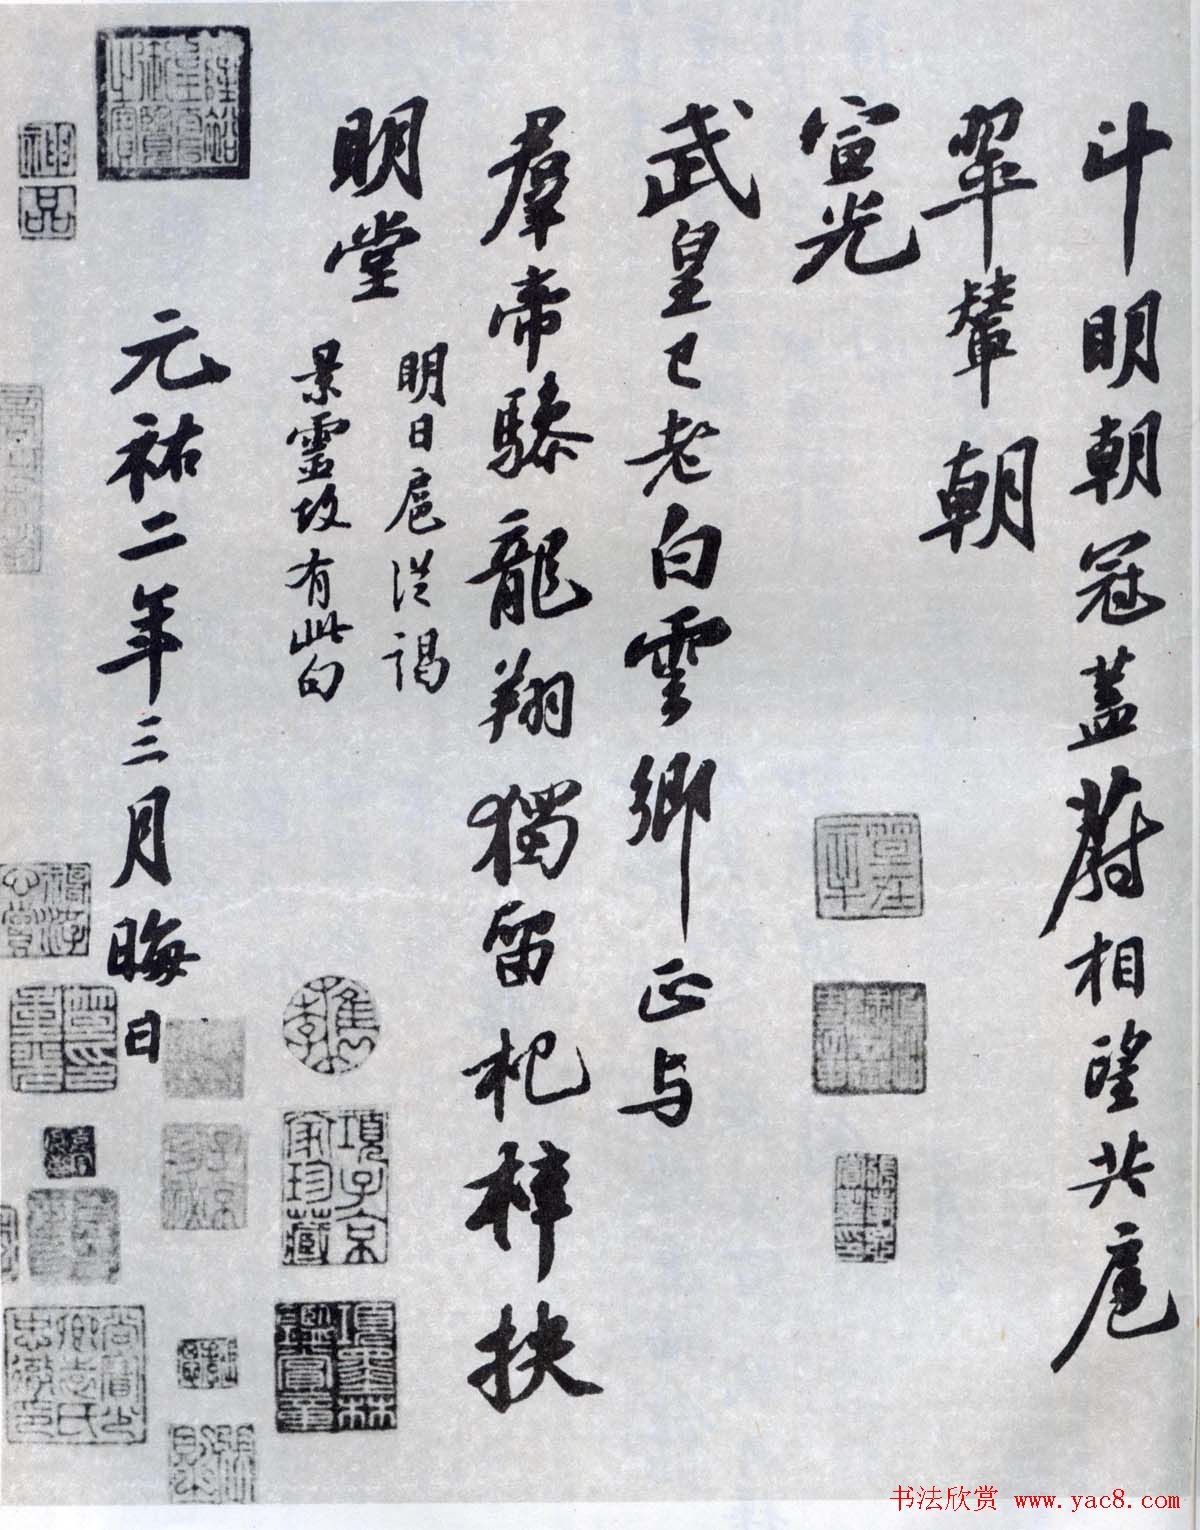 斗明朝冠蓋蔚相望共扈
翠輦朝
宣光
武皇已老白雲鄉正与
羣帝驂龍翔獨留杞梓扶
明堂
明日扈從謁
景靈故有此句
元祐二年三月晦日
神品
隆裕皇后御覽之寶
項子京家珍藏
項墨林鑑賞章
書法欣赏 www.yac8.com